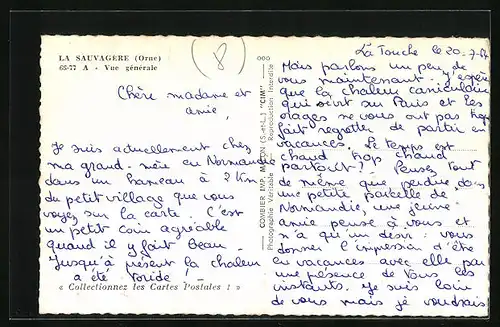 LA SAUVAGÈRE (Orne)
68-77 A - Vue générale
(8)
Chère madame et
amie,
Je suis actuellement chez
ma grand-mère en Normandie
dans un hameau à 2 Km
du petit village que vous
voyez sur la carte. C'est
un petit coin agréable
quand il y fait beau.
Jusqu'à présent la chaleur
a été torride !
« Collectionnez les Cartes Postales ! »
COMBIER IMP. MACON (S.-et-L.) "CIM"
Photographie Véritable - Reproduction Interdite
La Touche le 20-7-
Mais parlons un peu de
vous maintenant. J'espère
que la chaleur caniculaire
qui sévit sur Paris et les
orages ne vous ont pas trop
fait regretter de partir en
vacances. Le temps est
chaud trop chaud
partout ! Pensez tout
de même que perdue dans
une petite parcelle de
Normandie, une jeune
amie pense à vous et
n'a qu'un désir : vous
donner l'impression d'être
en vacances avec elle par
une présence de tous les
instants. Je suis loin
de vous mais je voudrais